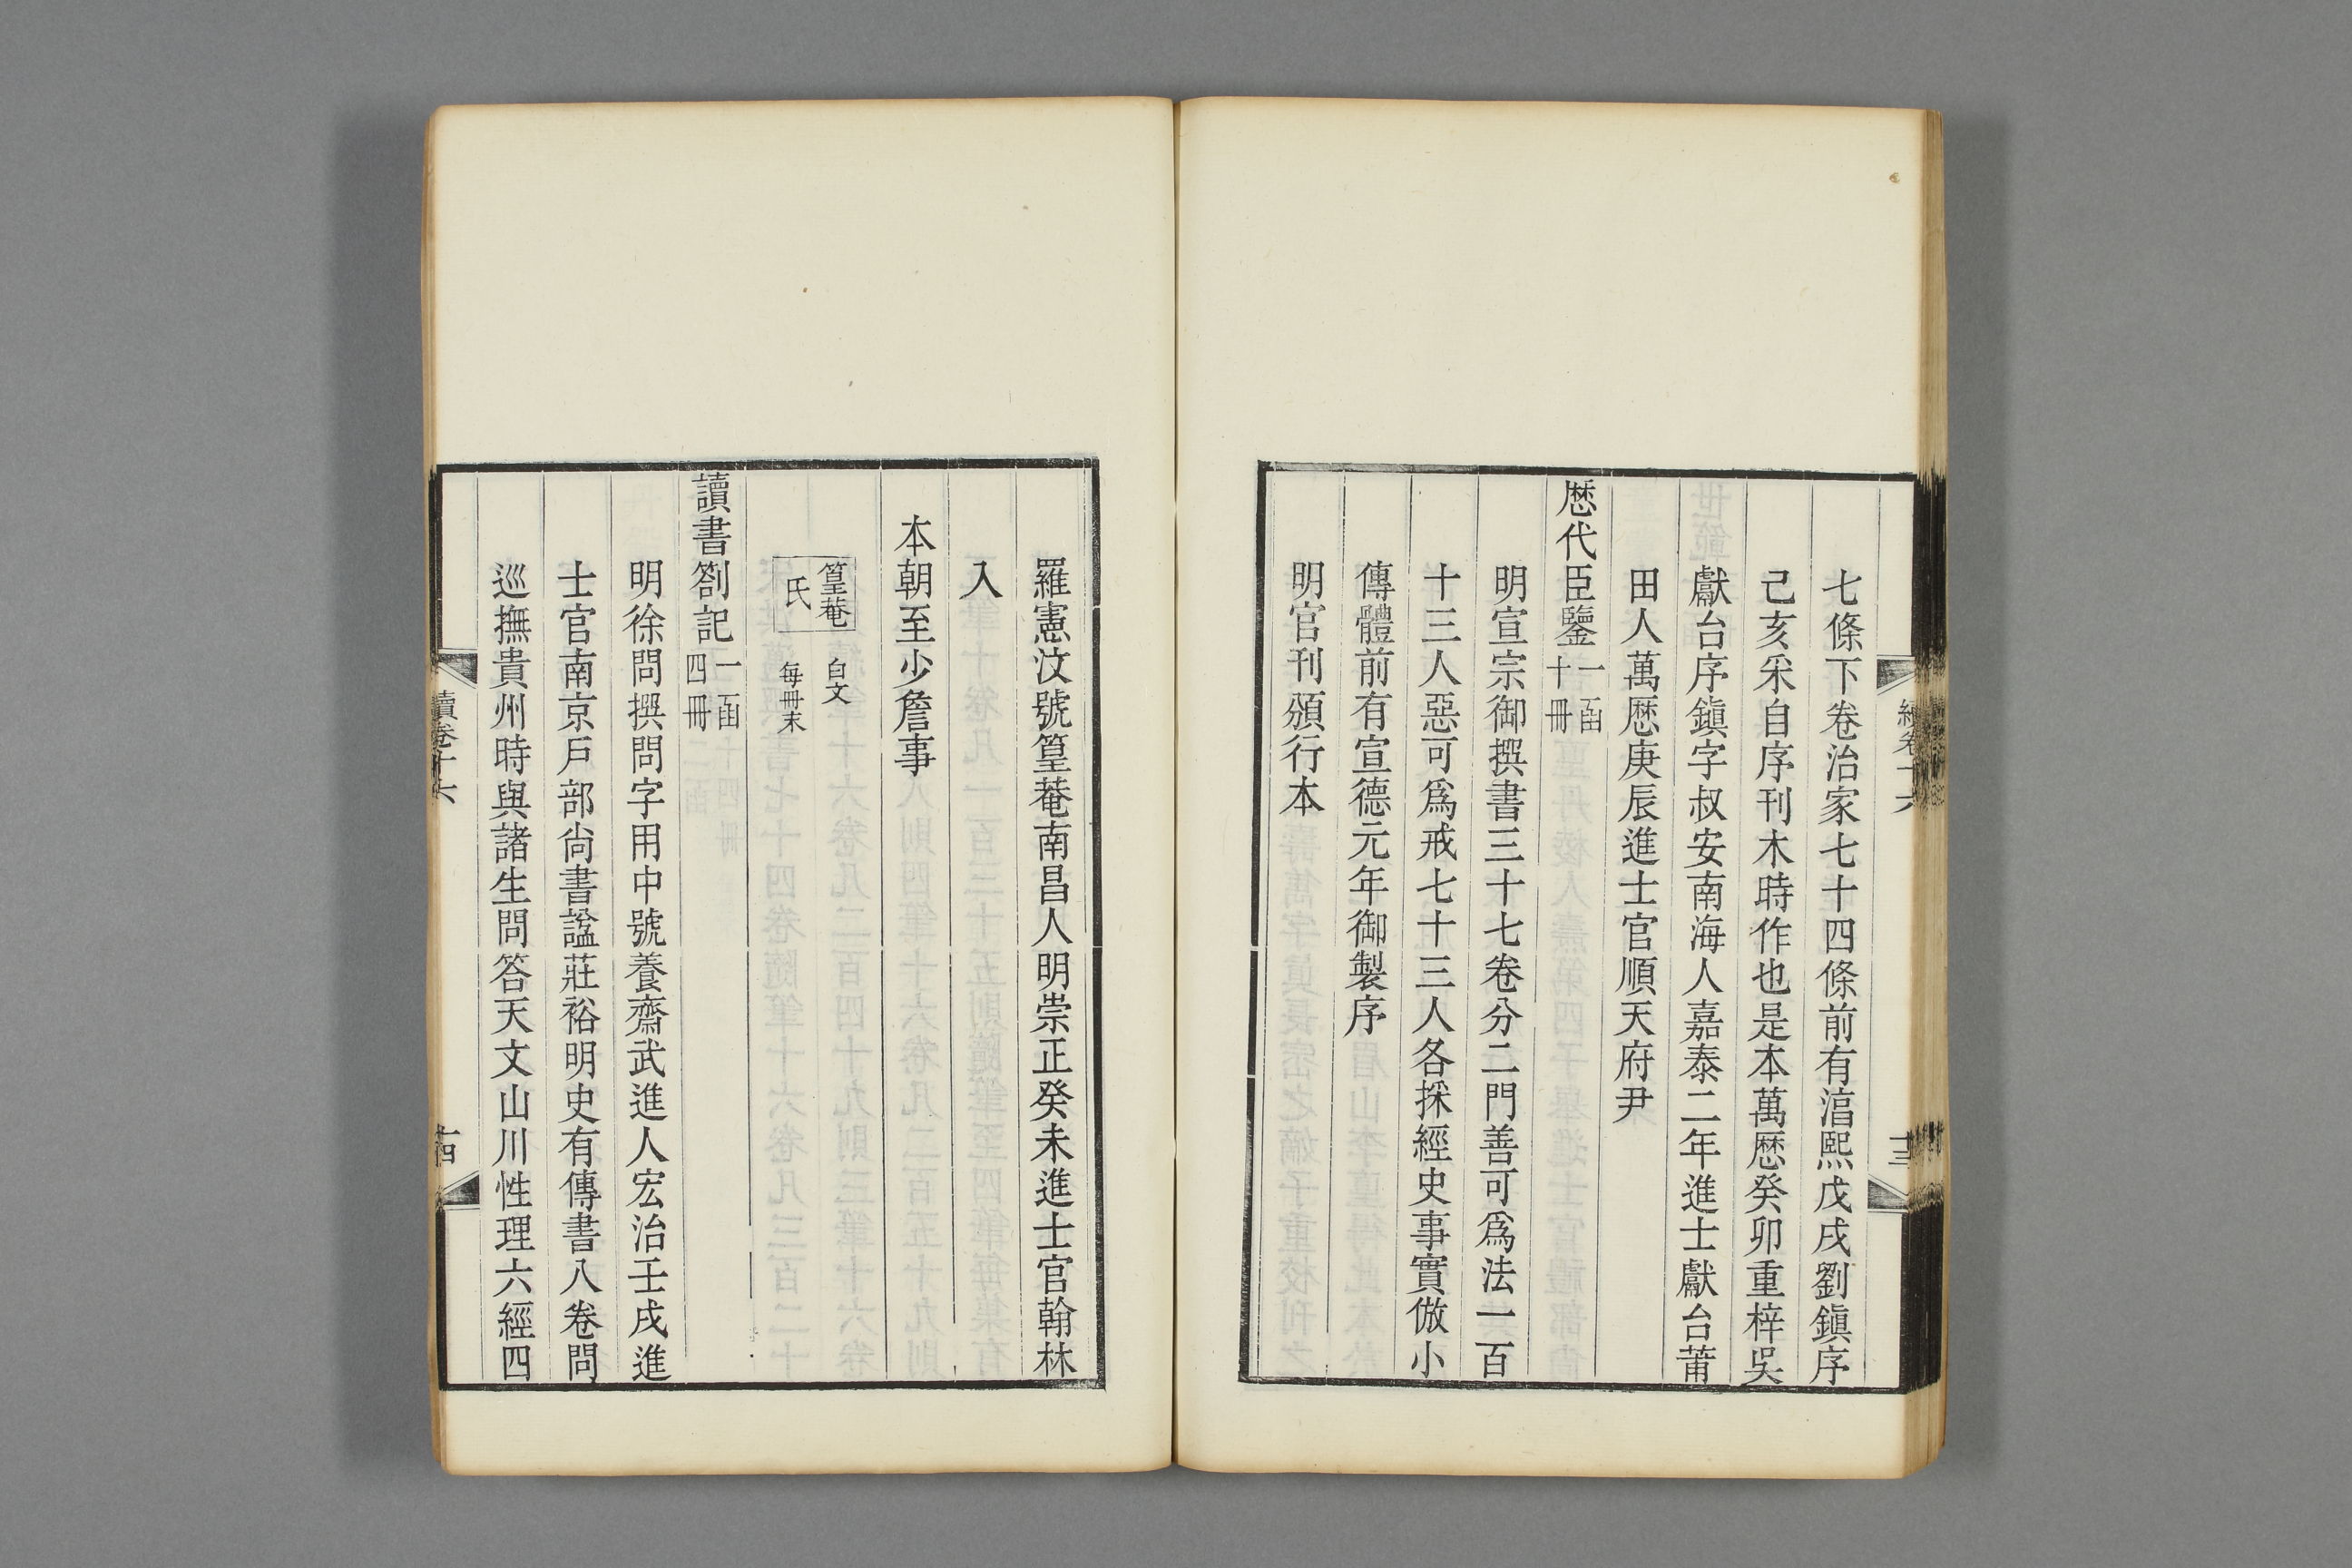 七條下卷治家七十四條前有湻熙戊戌劉鎭序
己亥采自序刊木時作也是本萬厯癸卯重梓吳
獻台序鎭字叔安南海人嘉泰二年進士獻台莆
田人萬厯庚辰進士官順天府尹
厯代臣鑒一函
十冊
明宣宗御撰書三十七卷分二門善可爲法一百
十三人惡可爲戒七十三人各採經史事實倣小
傳體前有宣德元年御製序
明官刊頒行本
羅憲汶號篁菴南昌人明崇正癸未進士官翰林
入
本朝至少詹事
篁菴
氏
白文
每冊末
讀書劄記一函
四冊
明徐問撰問字用中號養齋武進人宏治壬戌進
士官南京戸部尙書諡莊裕明史有傳書八卷問
巡撫貴州時與諸生問答天文山川性理六經四
續卷十六
十四